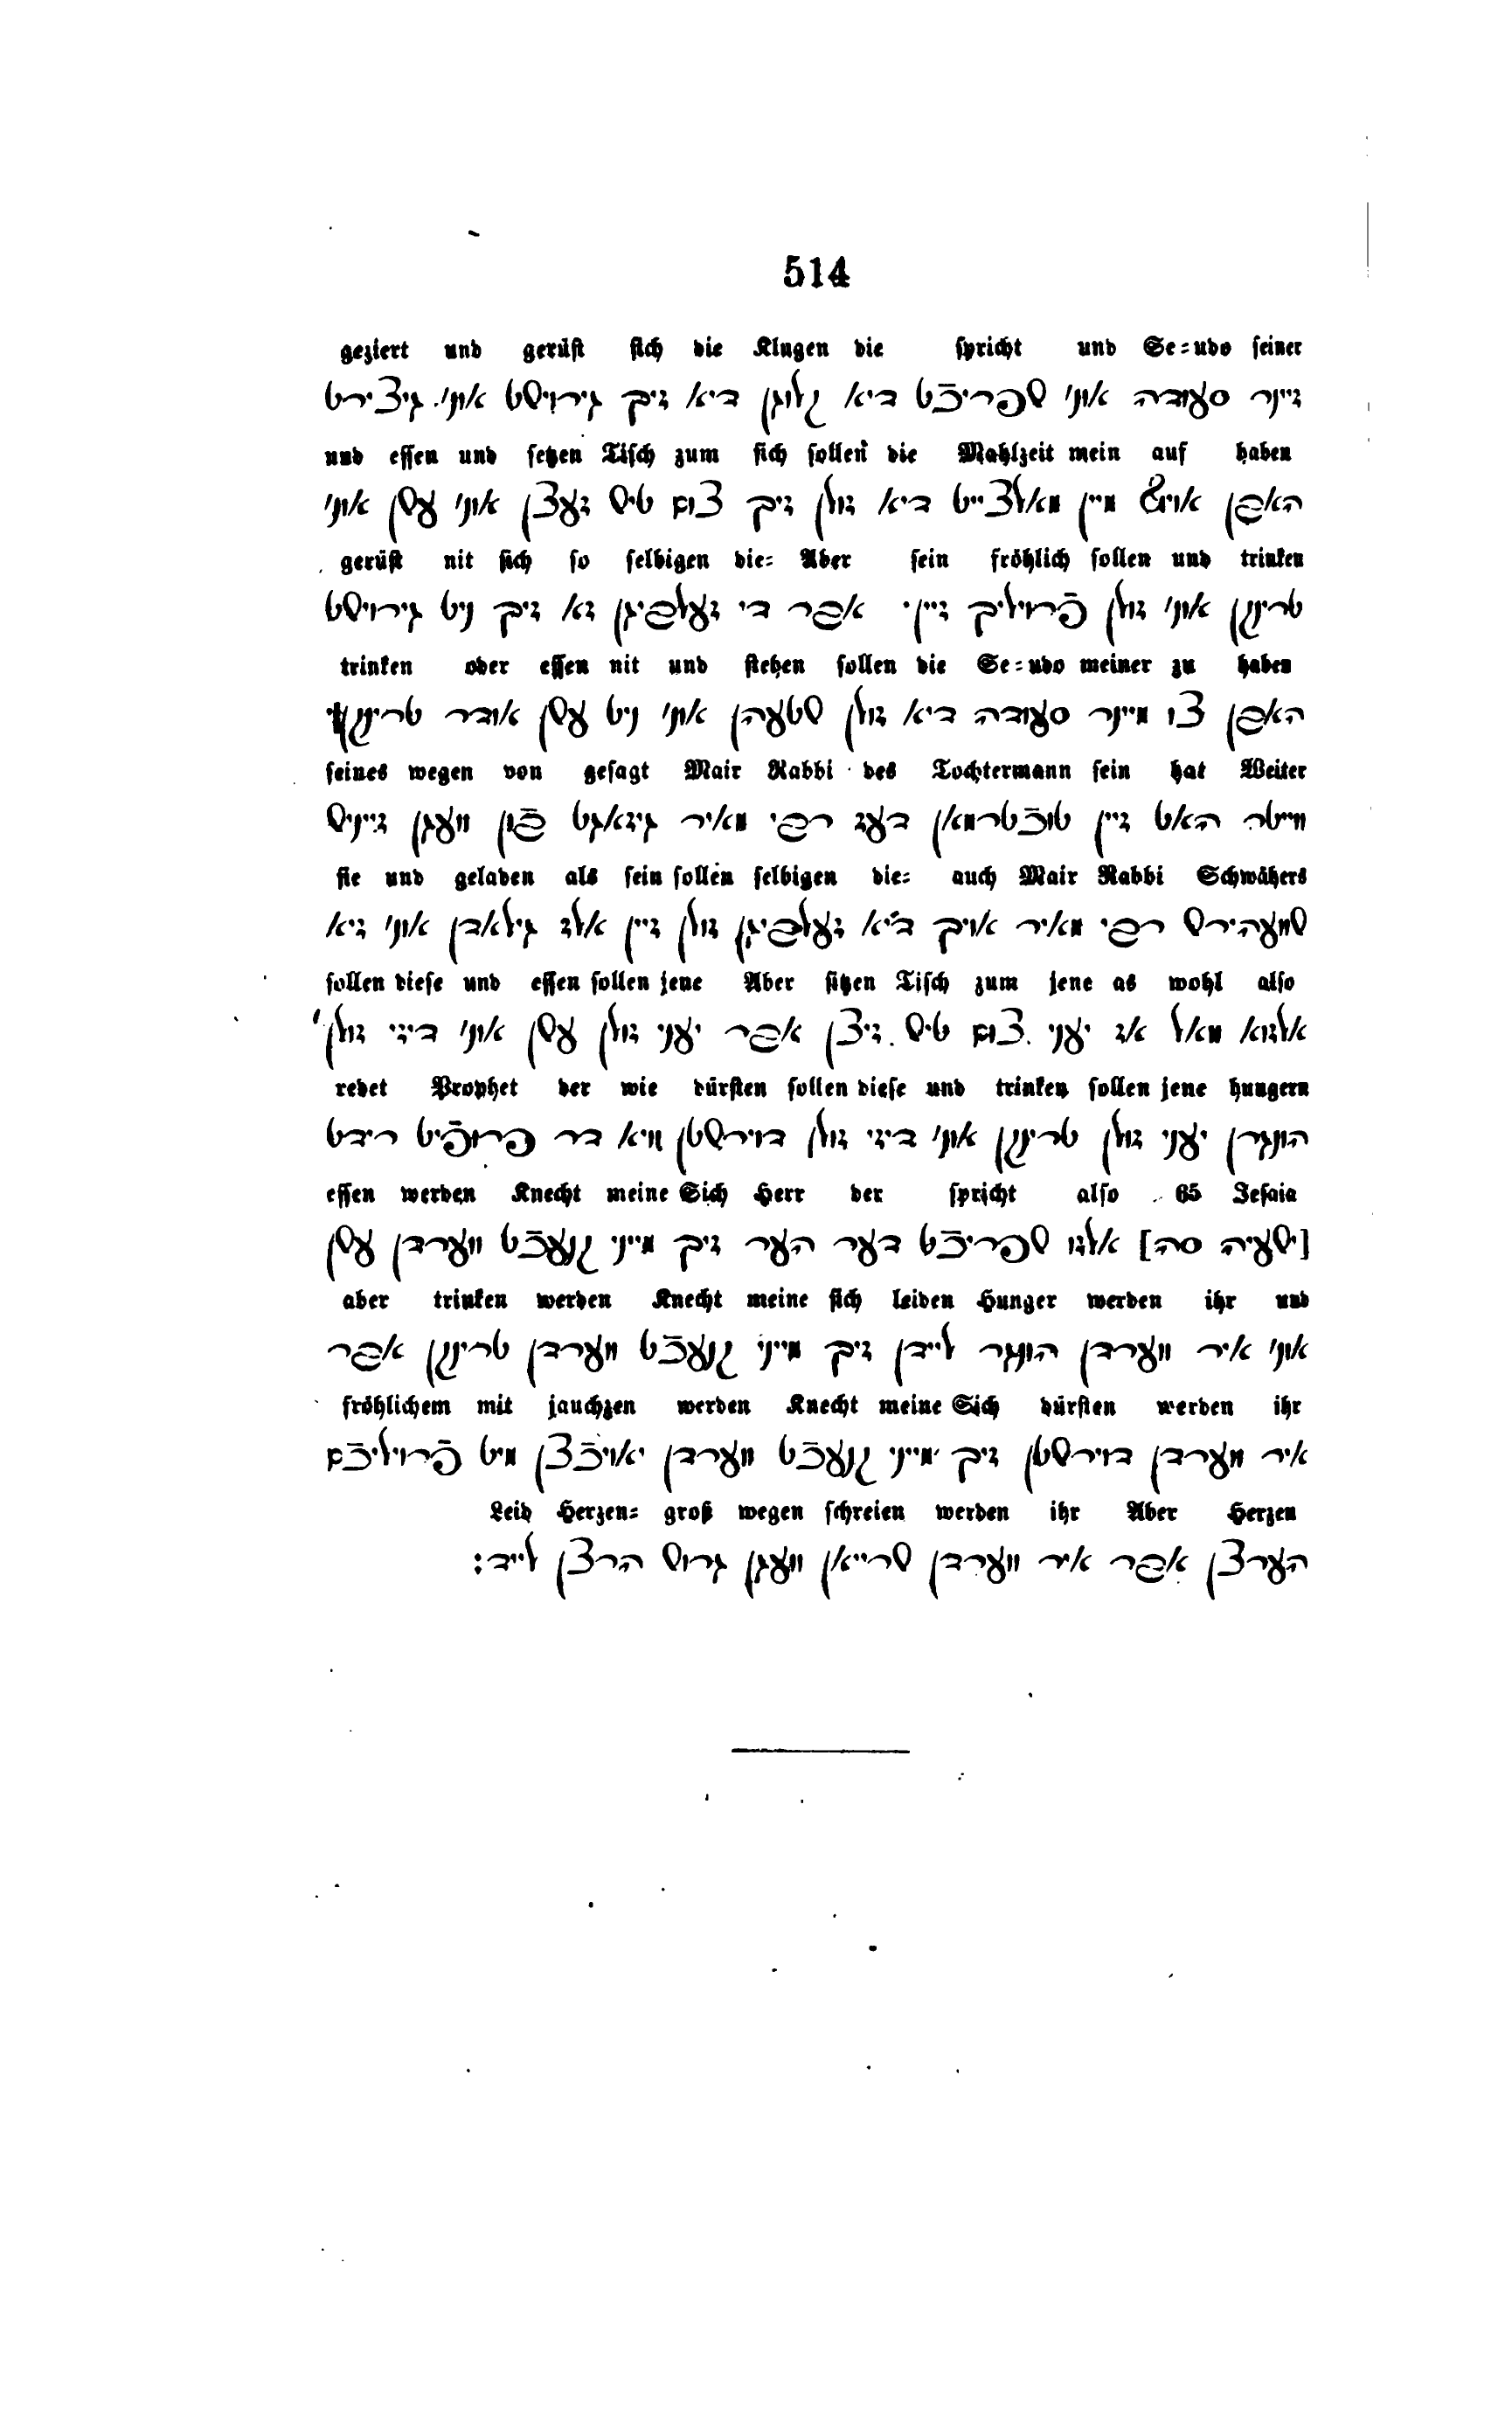 514
geziert und gerüst sich die Klugen die spricht und Se=udo seiner
זיינר סעודה אונ׳ שפריכֿט דיא קלוגן דיא זיך גירוישט אונ׳ גיצירט
und essen und setzen Tisch zum sich sollen die Mahlzeit mein auf haben
האבן אויף מיין מאלצייט דיא זולן זיך צום טיש זעצן אונ׳ עסן אונ׳
gerüst nit sich so selbigen die= Aber sein fröhlich sollen und trinken
טרינקן אונ׳ זולן פֿרויליך זיין׳ אבר די זעלביגן זא זיך ניט גירוישט
trinken oder essen nit und stehen sollen die Se=udo meiner zu haben
האבן צו מיינר סעודה דיא זולן שטעהן אונ׳ ניט עסן אודר טרינקן׳
seines wegen von gesagt Mair Rabbi des Tochtermann sein hat Weiter
ווייטר האט זיין טוכֿטרמאן דעז רבי מאיר גיזאגט פֿון וועגן זייניש
sie und geladen als sein sollen selbigen die= auch Mair Rabbi Schwähers
שוועהירש רבי מאיר אויך דיא זעלביגן זולן זיין אלז גילאדן אונ׳ זיא
sollen diese und essen sollen jene Aber sitzen Tisch zum jene as wohl also
אלזוא וואל אז יעני צום טיש זיצן אבר יעני זולן עסן אונ׳ דיזי זולן
redet Prophet der wie dürsten sollen diese und trinken sollen jene hungern
הונגרן יעני זולן טרינקן אונ׳ דיזי זולן דוירשטן וויא דר פרופֿיט רידט
essen werden Knecht meine Sich Herr der spricht also 65 Jesaia
[ישעיה סה] אלזו שפריכֿט דער הער זיך מייני קנעכֿט ווערדן עסן
aber trinken werden Knecht meine sich leiden Hunger werden ihr und
אונ׳ איר ווערדן הונגר ליידן זיך מייני קנעכֿט ווערדן טרינקן אבר
fröhlichem mit jauchzen werden Knecht meine Sich dürsten werden ihr
איר ווערדן דוירשטן זיך מייני קנעכֿט ווערדן יאויכֿצן מיט פֿרויליכֿם
Leid Herzen= groß wegen schreien werden ihr Aber Herzen
הערצן אבר איר ווערדן שרייאן וועגן גרוש הרצן לייד: